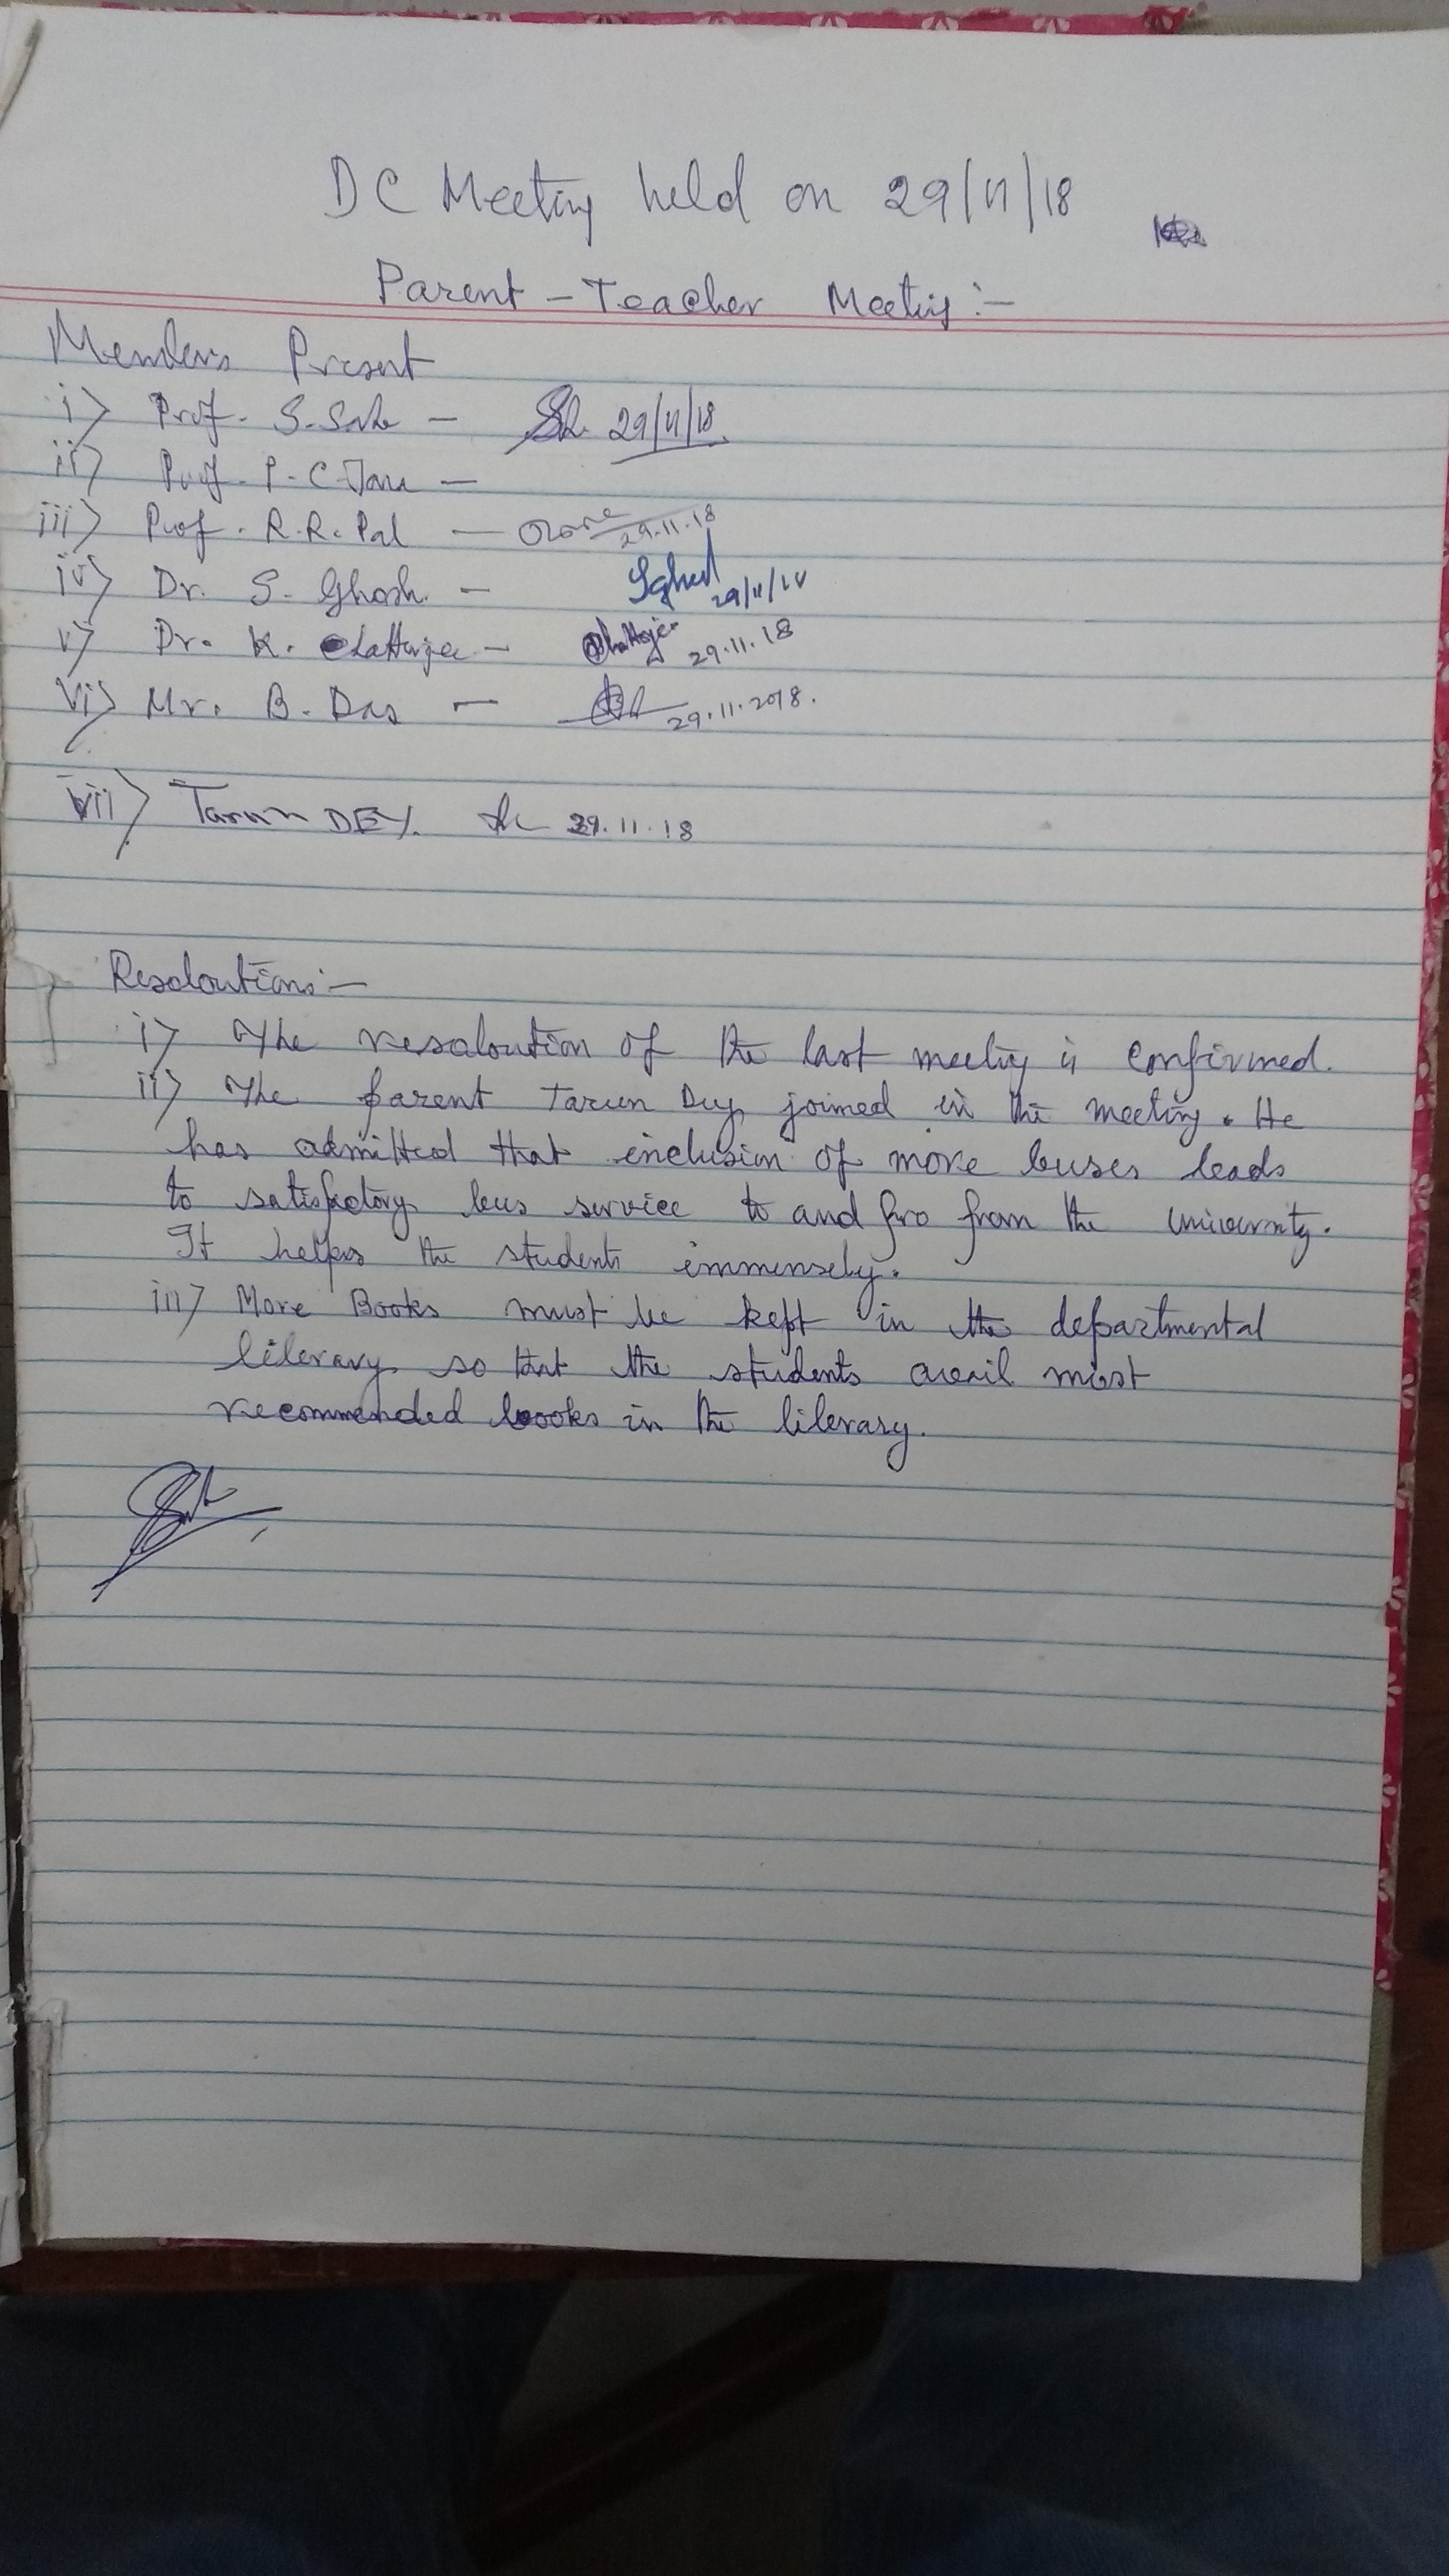 DC Meeting held on 29/11/18
Parent - Teacher Meeting :-
Members Present
i) Prof. S. Saha - 29/11/18
ii) Prof. P. C. Jana -
iii) Prof. R. R. Pal - 29.11.18
iv) Dr. S. Ghosh. - SGhosh 29/11/18
v) Dr. K. Chatterjee - Chatterjee 29.11.18
vi) Mr. B. Das - 29.11.2018.
vii) Tarun DEY. 29.11.18
Resoloutions:-
i) The resaloution of the last meeting is confirmed.
ii) The parent Tarun Dey joined in the meeting. He
has admitted that inclusion of more buses leads
to satisfactory bus service to and fro from the university.
It helps the students immensely.
iii) More Books must be kept in the departmental
library so that the students avail most
recommended books in the library.